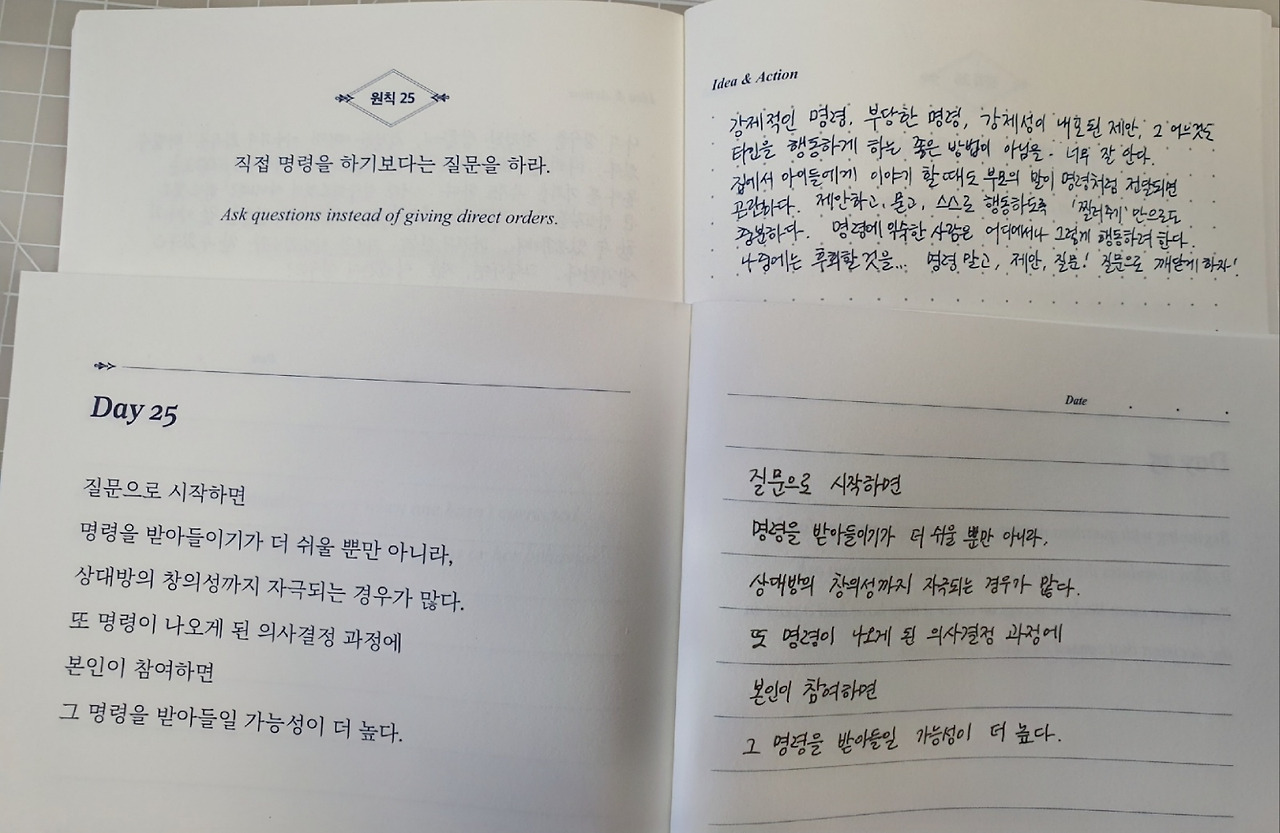 원칙 25
직접 명령을 하기보다는 질문을 하라.
Ask questions instead of giving direct orders.
Idea & Action
강제적인 명령, 부당한 명령, 강제성이 내포된 제안, 그 어느것도
타인을 행동하게 하는 좋은 방법이 아님을. 너무 잘 안다.
집에서 아이들에게 이야기 할 때도 부모의 말이 명령처럼 전달되면
곤란하다. 제안하고, 묻고, 스스로 행동하도록 '찔러주기' 만으로도
충분하다. 명령에 익숙한 사람은 어디에서나 그렇게 행동하려 한다.
나중에는 후회할 것을... 명령 말고, 제안, 질문! 질문으로 깨닫게 하자!
Day 25
질문으로 시작하면
명령을 받아들이기가 더 쉬울 뿐만 아니라,
상대방의 창의성까지 자극되는 경우가 많다.
또 명령이 나오게 된 의사결정 과정에
본인이 참여하면
그 명령을 받아들일 가능성이 더 높다.
Date . . .
질문으로 시작하면
명령을 받아들이기가 더 쉬울 뿐만 아니라,
상대방의 창의성까지 자극되는 경우가 많다.
또 명령이 나오게 된 의사결정 과정에
본인이 참여하면
그 명령을 받아들일 가능성이 더 높다.